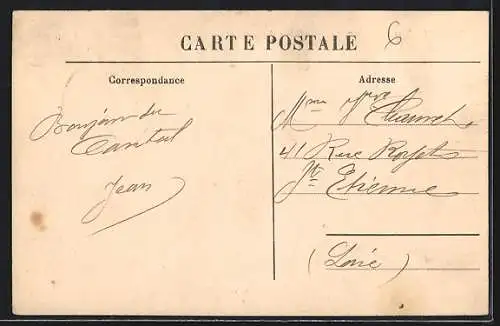 CARTE POSTALE
6
Correspondance
Bonjour du
Cantal
Jean
Adresse
Mme Vve Chauvet
41 Rue Royet
St Etienne
(Loire)